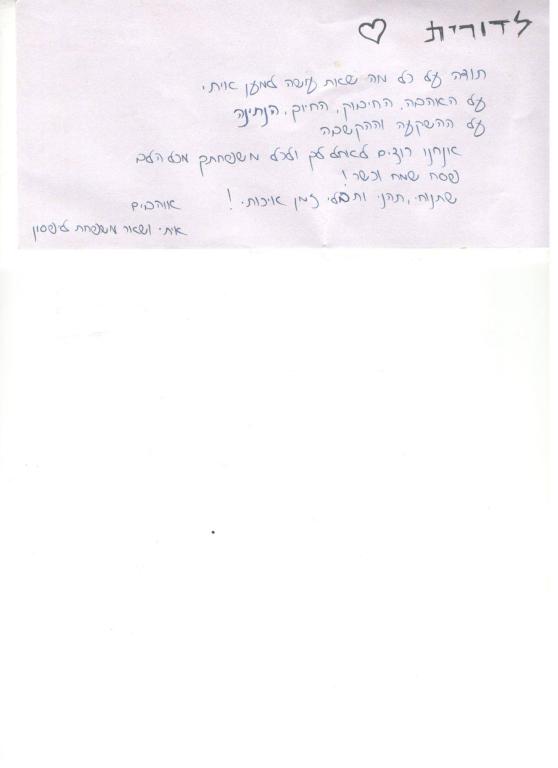 לדורית ♡
תודה על כל מה שאת עושה למען איתי.
על האהבה, החיבוק, החיוך, הנתינה
על ההשקעה וההקשבה
אנחנו רוצים לאחל לך ולכל משפחתך מכל הלב
פסח שמח וכשר!
שתנוחי, תהני ותבלי זמן איכות! אוהבים
איתי ושאר משפחת ליפסון